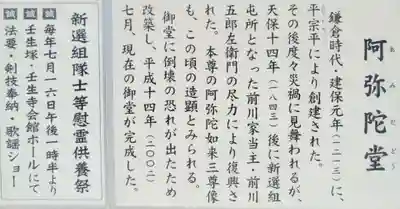 阿弥陀堂
あみだどう
鎌倉時代・建保元年(一二一三)に、
平宗平により創建された。
その後度々災禍に見舞われるが、
天保十四年(一八四三)後に新選組
屯所となった前川家当主・前川
五郎左衛門の尽力により復興さ
れた。本尊の阿弥陀如来三尊像
も、この頃の造顕とみられる。
御堂に倒壊の恐れが出たため
改築し、平成十四年(二〇〇二)
七月、現在の御堂が完成した。
新選組隊士等慰霊供養祭
誠
毎年七月一六日午後一時半より
壬生塚・壬生寺会館ホールにて
法要・剣技奉納・歌謡ショー
誠